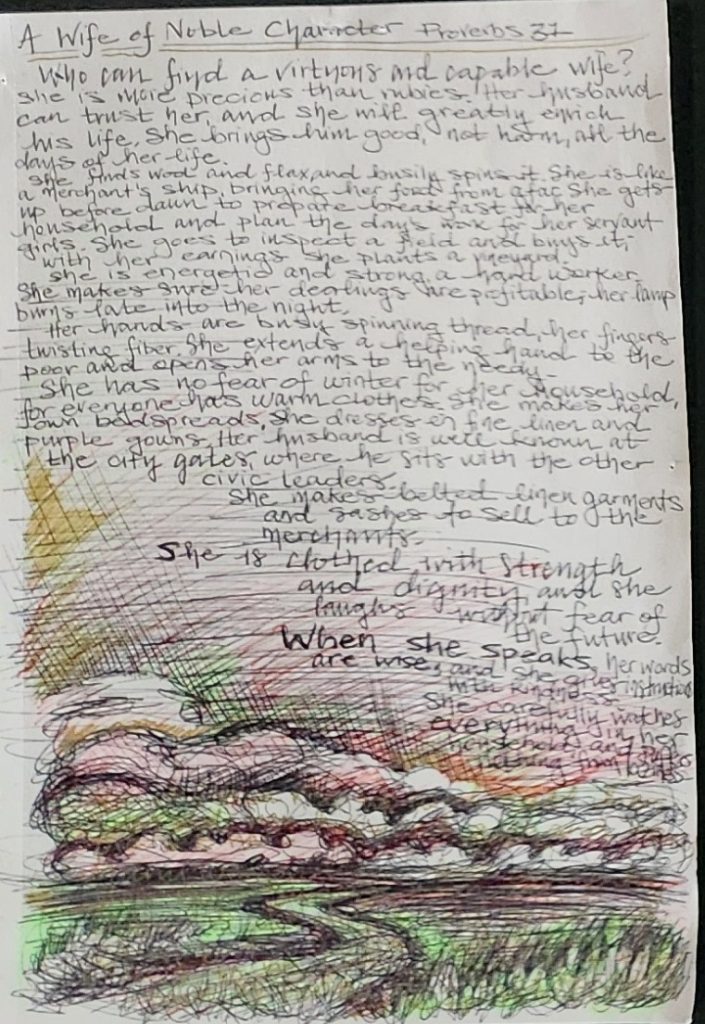 A Wife of Noble Character Proverbs 31
Who can find a virtuous and capable wife?
She is more precious than rubies. Her husband
can trust her, and she will greatly enrich
his life. She brings him good, not harm, all the
days of her life.
She finds wool and flax, and busily spins it. She is like
a merchant's ship, bringing her food from afar. She gets
up before dawn to prepare breakfast for her
household and plan the day's work for her servant
girls. She goes to inspect a field and buys it;
with her earnings she plants a vineyard.
She is energetic and strong, a hard worker.
She makes sure her dealings are profitable; her lamp
burns late into the night.
Her hands are busy spinning thread, her fingers
twisting fiber. She extends a helping hand to the
poor and opens her arms to the needy.
She has no fear of winter for her household,
for everyone has warm clothes. She makes her
own bedspreads, She dresses in fine linen and
purple gowns. Her husband is well known at
the city gates, where he sits with the other
civic leaders.
She makes belted linen garments
and sashes to sell to the
merchants.
She is clothed with strength
and dignity and she
laughs without fear of
the future.
When she speaks, her words
are wise, and she gives instructions
with kindness.
She carefully watches
everything in her
household and
nothing from